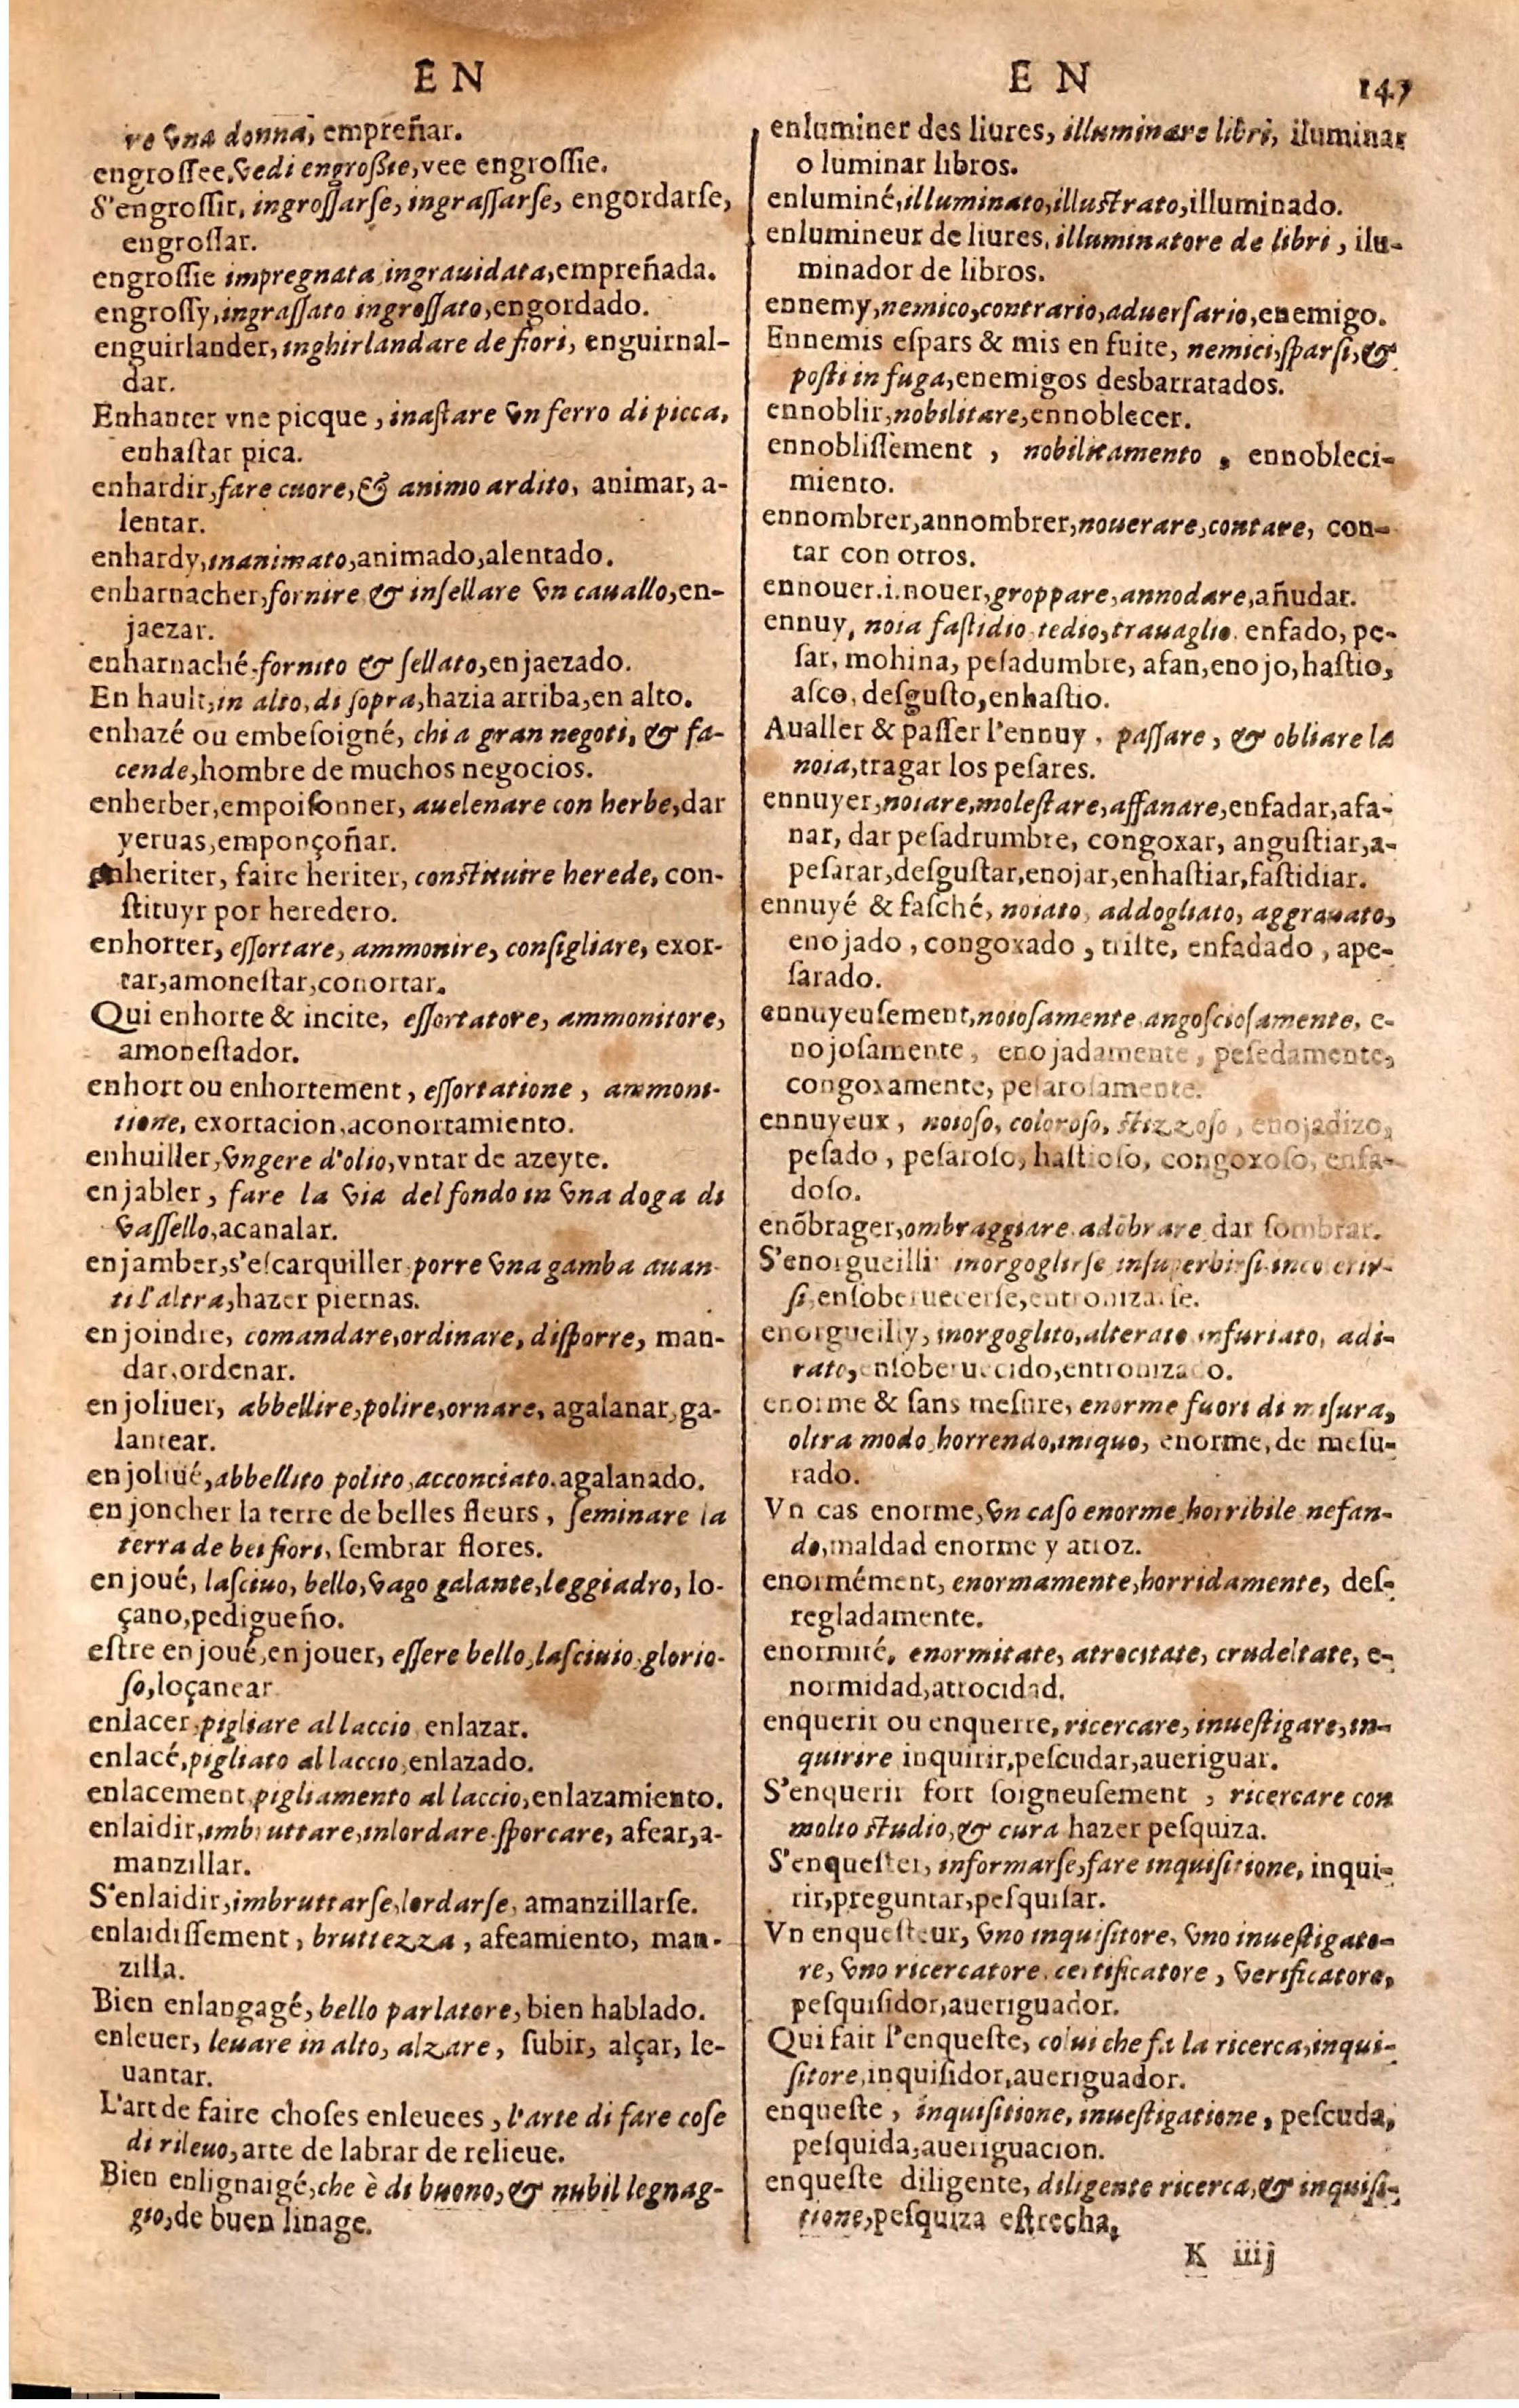 EN
EN
147
re vna donna, empreñar.
engrossee, vedi engroßie, vee engrossie.
S'engrossir, ingrossarse, ingrassarse, engordarse,
engrossar.
engrossie impregnata ingrauidata, empreñada.
engrossy, ingrassato ingrossato, engordado.
enguirlander, inghirlandare de fiori, enguirnal-
dar.
Enhanter vne picque, inastare vn ferro di picca,
enhastar pica.
enhardir, fare cuore, & animo ardito, animar, a-
lentar.
enhardy, inanimato, animado, alentado.
enharnacher, fornire & insellare vn cauallo, en-
jaezar.
enharnaché, fornito & sellato, enjaezado.
En hault, in alto, di sopra, hazia arriba, en alto.
enhazé ou embesoigné, chi a gran negoti, & fa-
cende, hombre de muchos negocios.
enherber, empoisonner, auelenare con herbe, dar
yeruas, emponçoñar.
enheriter, faire heriter, constituire herede, con-
stituyr por heredero.
enhorter, essortare, ammonire, consigliare, exor-
tar, amonestar, conortar.
Qui enhorte & incite, essortatore, ammonitore,
amonestador.
enhort ou enhortement, essortatione, ammoni-
tione, exortacion, aconortamiento.
enhuiller, vngere d'olio, vntar de azeyte.
enjabler, fare la via del fondo in vna doga di
vassello, acanalar.
enjamber, s'escarquiller porre vna gamba auan-
ti l'altra, hazer piernas.
enjoindre, comandare, ordinare, disporre, man-
dar, ordenar.
enjoliuer, abbellire, polire, ornare, agalanar, ga-
lantear.
enjoliué, abbellito polito, acconciato. agalanado.
enjoncher la terre de belles fleurs, seminare la
terra de bei fiori, sembrar flores.
enjoué, lasciuo, bello, vago galante, leggiadro, lo-
çano, pedigueño.
estre enjoué, enjouer, essere bello, lasciuio, glorio-
so, loçanear.
enlacer, pigliare al laccio, enlazar.
enlacé, pigliato al laccio, enlazado.
enlacement, pigliamento al laccio, enlazamiento.
enlaidir, imbruttare, inlordare, sporcare, afear, a-
manzillar.
S'enlaidir, imbruttarse, lordarse, amanzillarse.
enlaidissement, bruttezza, afeamiento, man-
zilla.
Bien enlangagé, bello parlatore, bien hablado.
enleuer, leuare in alto, alzare, subir, alçar, le-
uantar.
L'art de faire choses enleuees, l'arte di fare cose
di rileuo, arte de labrar de relieue.
Bien enlignaigé, che è di buono, & nubil legnag-
gio, de buen linage.
enluminer des liures, illuminare libri, iluminar
o luminar libros.
enluminé, illuminato, illustrato, illuminado.
enlumineur de liures, illuminatore de libri, ilu-
minador de libros.
ennemy, nemico, contrario, aduersario, enemigo.
Ennemis espars & mis en fuite, nemici, sparsi, &
posti in fuga, enemigos desbarratados.
ennoblir, nobilitare, ennoblecer.
ennoblissement, nobilitamento, ennobleci-
miento.
ennombrer, annombrer, nouerare, contare, con-
tar con otros.
ennouer. i. nouer, groppare, annodare, añudar.
ennuy, noia fastidio, tedio, trauaglio. enfado, pe-
sar, mohina, pesadumbre, afan, enojo, hastio,
asco, desgusto, enhastio.
Aualler & passer l'ennuy, passare, & obliare la
noia, tragar los pesares.
ennuyer, noiare, molestare, affanare, enfadar, afa-
nar, dar pesadrumbre, congoxar, angustiar, a-
pesarar, desgustar, enojar, enhastiar, fastidiar.
ennuyé & fasché, noiato, addogliato, aggrauato,
enojado, congoxado, triste, enfadado, ape-
sarado.
ennuyeusement, noiosamente angosciosamente, e-
nojosamente, enojadamente, pesedamente,
congoxamente, pesarosamente.
ennuyeux, noioso, coloroso, stizzoso, enojadizo,
pesado, pesaroso, hastioso, congoxoso, enfa-
doso.
enõbrager, ombraggiare adõbrare dar sombrar.
S'enorgueillir inorgoglirse insuperbirsi
si, ensoberuecerse, entronizarse.
enorgueilly, inorgoglito, alterato infuriato, adi-
rato, ensoberuecido, entronizado.
enorme & sans mesure, enorme fuori di misura,
oltra modo, horrendo, iniquo, enorme, de mesu-
rado.
Vn cas enorme, vn caso enorme, horribile nefan-
do, maldad enorme y atroz.
enormément, enormamente, horridamente, des-
regladamente.
enormité, enormitate, atrocitate, crudeltate, e-
normidad, atrocidad.
enquerir ou enquerre, ricercare, inuestigare, in-
quirire inquirir, pescudar, aueriguar.
S'enquerir fort soigneusement, ricercare con
molto studio, & cura hazer pesquiza.
S'enquester, informarse, fare inquisitione, inqui-
rir, preguntar, pesquisar.
Vn enquesteur, vno inquisitore, vno inuestigato-
re, vno ricercatore, certificatore, verificatore,
pesquisidor, aueriguador.
Qui fait l'enqueste, colui che fa la ricerca, inqui-
sitore, inquisidor, aueriguador.
enqueste, inquisitione, inuestigatione, pescuda,
pesquida, aueriguacion.
enqueste diligente, diligente ricerca, & inquisi-
tione, pesquiza estrecha,
K iiij